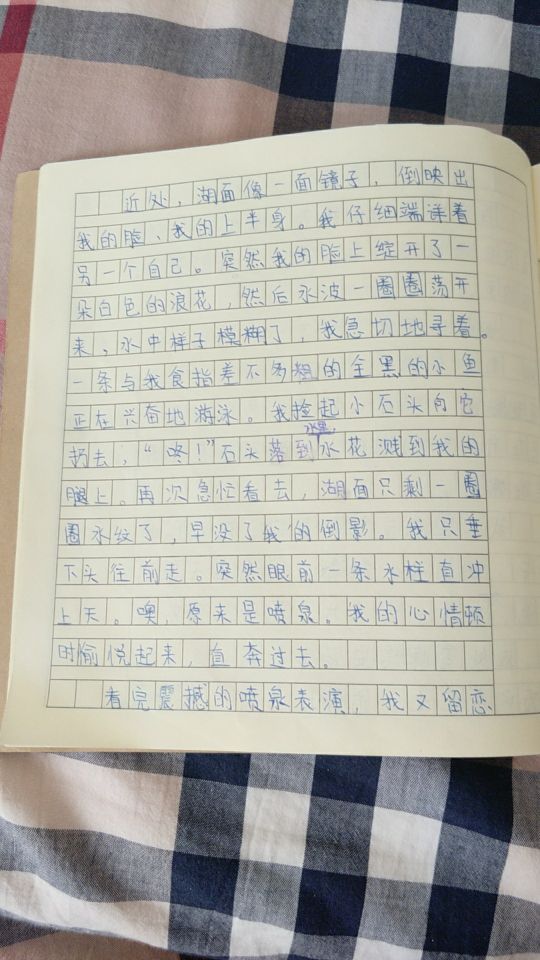 近处，湖面像一面镜子，倒映出
我的脸、我的上半身。我仔细端详着
另一个自己。突然我的脸上绽开了一
朵白色的浪花，然后水波一圈圈荡开
来，水中样子模糊了，我急切地寻着。
一条与我食指差不多粗的全黑的小鱼
正在兴奋地游泳。我捡起小石头向它
扔去，“咚！”石头落到水里，水花溅到我的
腿上。再次急忙看去，湖面只剩一圈
圈水纹了，早没了我的倒影。我只垂
下头往前走。突然眼前一条水柱直冲
上天。噢，原来是喷泉。我的心情顿
时愉悦起来，直奔过去。
看完震撼的喷泉表演，我又留恋